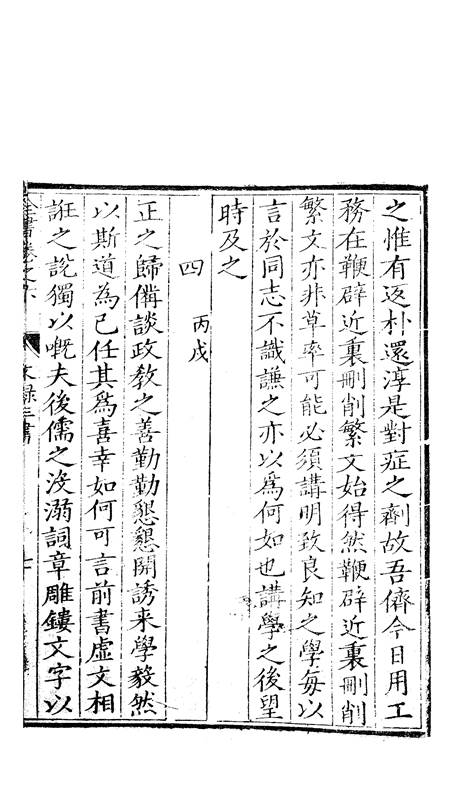 之惟有返朴還淳是對症之劑故吾儕今日用工
務在鞭辟近裏刪削繁文始得然鞭辟近裏刪削
繁文亦非草率可能必須講明致良知之學每以
言於同志不識謙之亦以爲何如也講學之後望
時及之
四 丙戌
正之歸備談政教之善勤勤懇懇開誘来學毅然
以斯道為已任其爲喜幸如何可言前書虚文相
誑之說獨以嘅夫後儒之没溺詞章雕鏤文字以
書卷之六 文錄三書